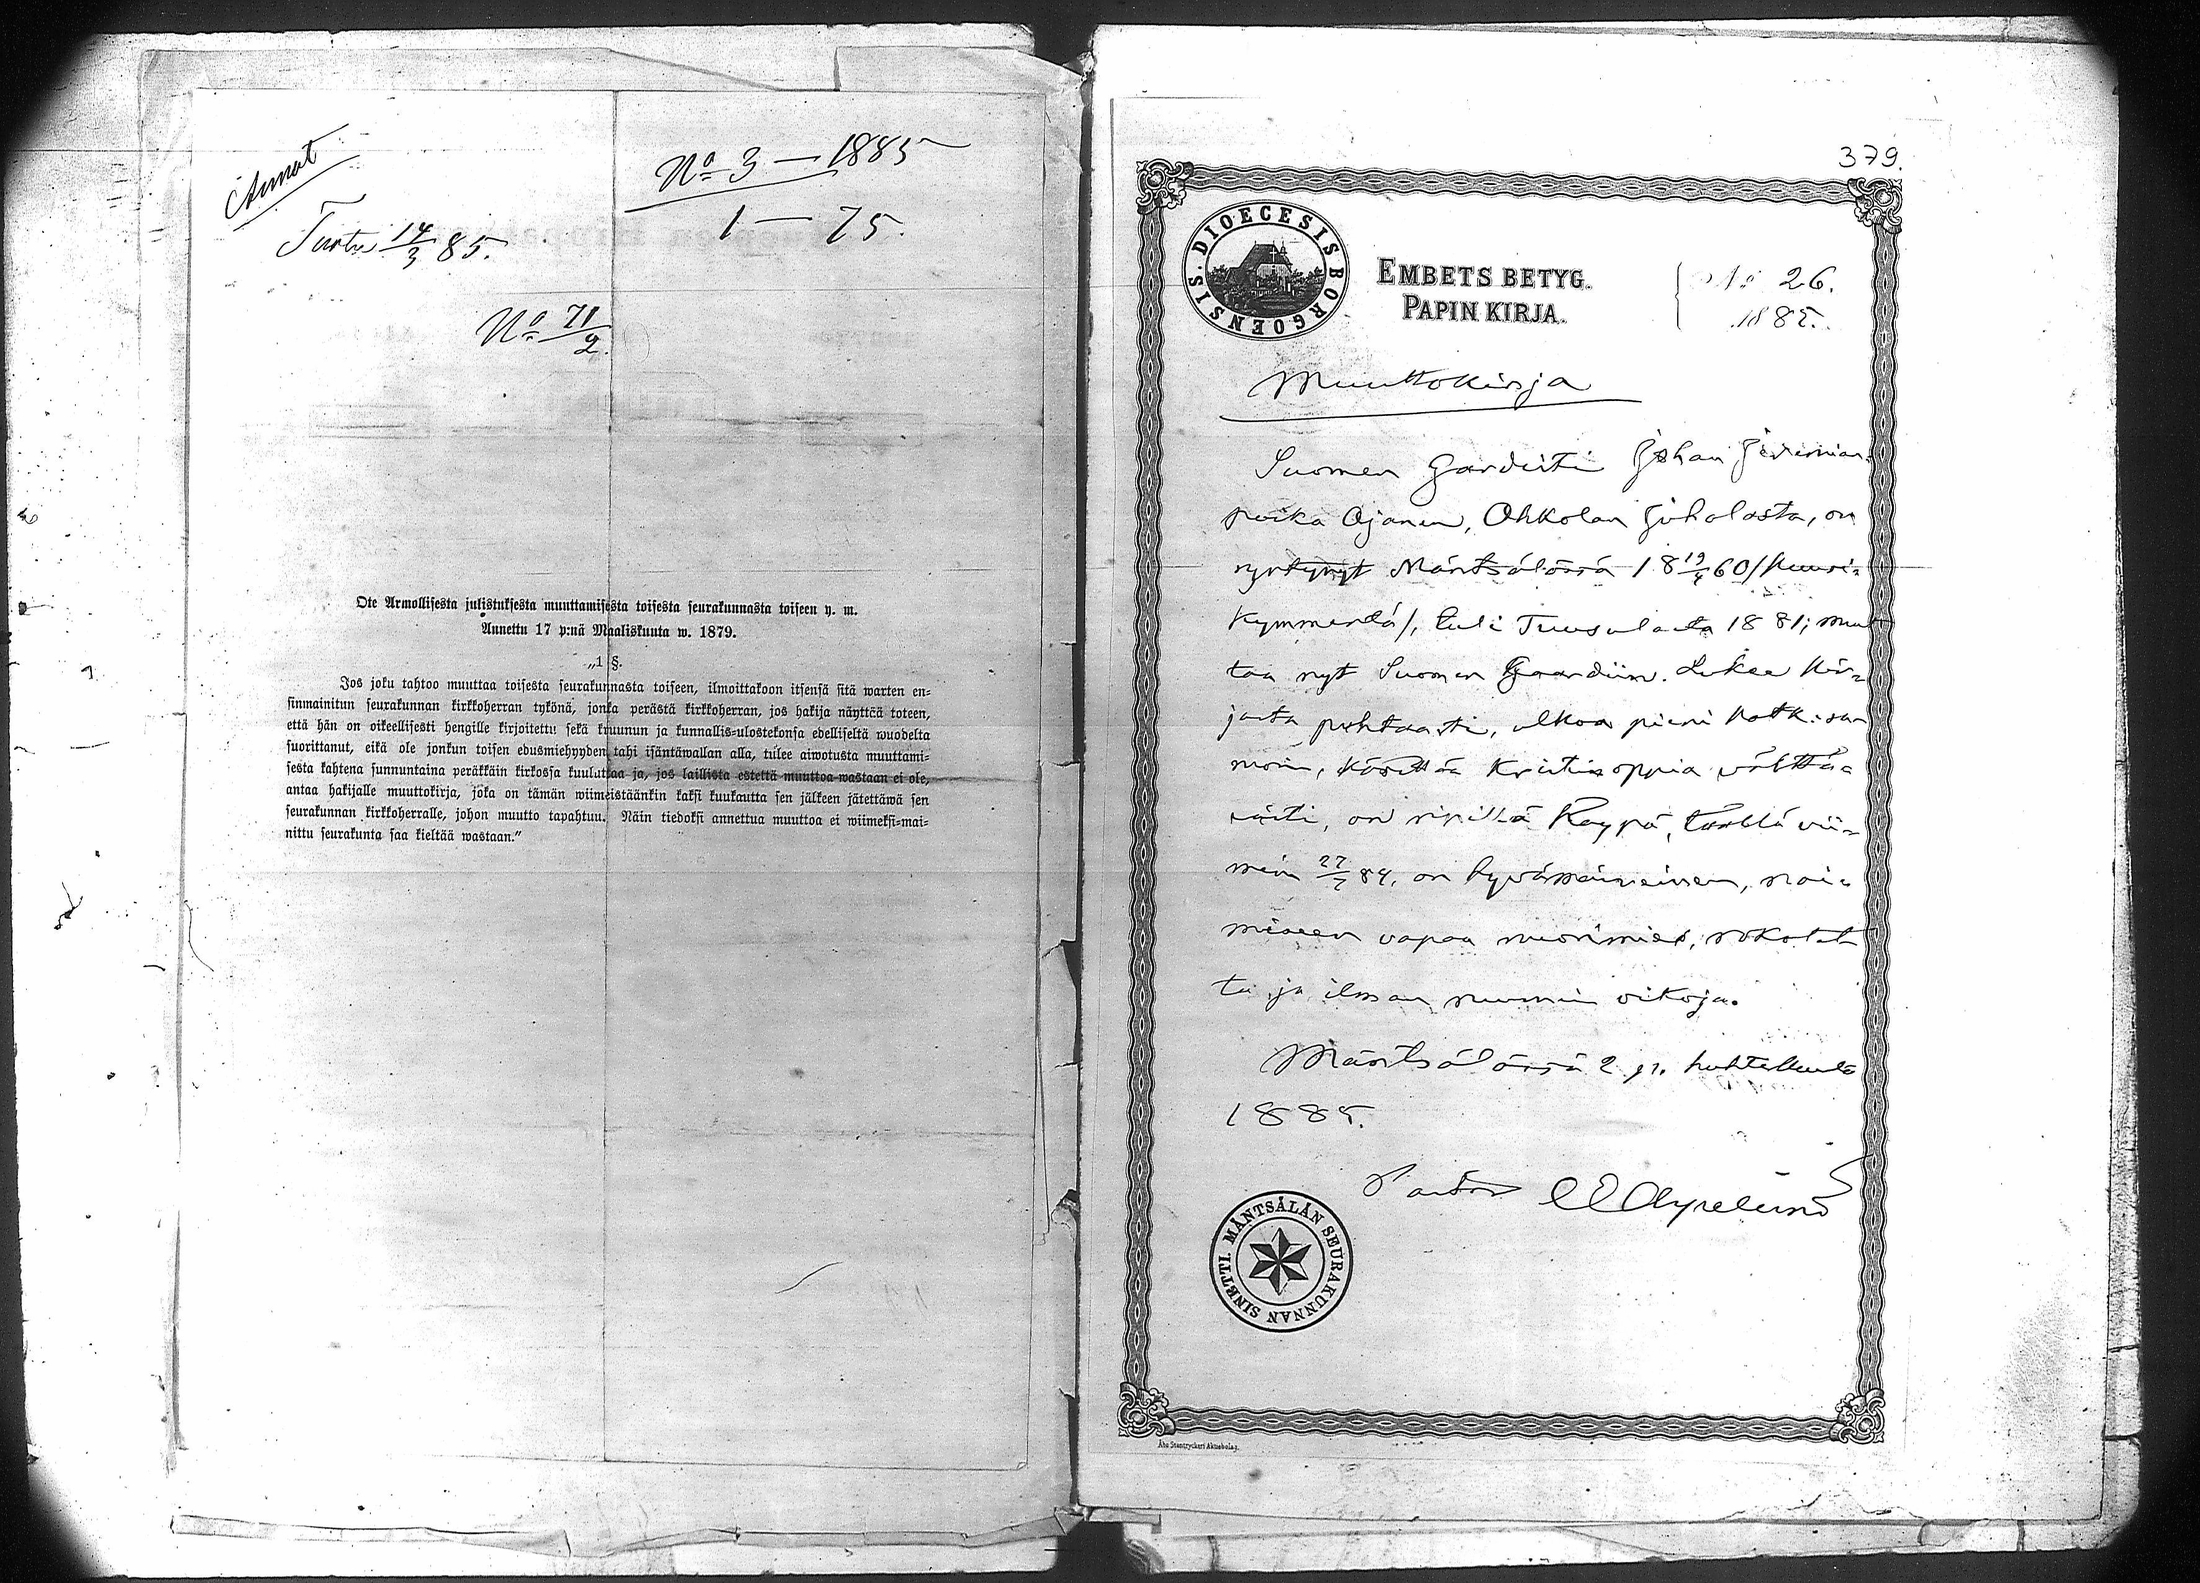 No 3 — 1885
1 — 75.
14/3 85.
No 71/2.
Ote Armollisesta julistuksesta muuttamisesta toisesta seurakunnasta toiseen y. m.
Annettu 17 p:nä Maaliskuuta w. 1879.
„1 §.
Jos joku tahtoo muuttaa toisesta seurakunnasta toiseen, ilmoittakoon itsensä sitä warten en=
sinmainitun seurakunnan kirkkoherran tykönä, jonka perästä kirkkoherran, jos hakija näyttää toteen,
että hän on oikeellisesti hengille kirjoitettu sekä kruunun ja kunnallis=ulostekonsa edelliseltä wuodelta
suorittanut, eikä ole jonkun toisen edusmiehyyden tahi isäntäwallan alla, tulee aiwotusta muuttami=
sesta kahtena sunnuntaina peräkkäin kirkossa kuuluttaa ja, jos laillista estettä muuttoa wastaan ei ole,
antaa hakijalle muuttokirja, joka on tämän wiimeistäänkin kaksi kuukautta sen jälkeen jätettäwä sen
seurakunnan kirkkoherralle, johon muutto tapahtuu. Näin tiedoksi annettua muuttoa ei wiimeksi=mai=
nittu seurakunta saa kieltää wastaan.”
379.
DIOECESIS BORGOENSIS.
EMBETS BETYG.
PAPIN KIRJA.
No 26.
1885.
Muuttokirja
Suomen Gardisti Johan Jeremian
poika Ojanen, Ohkolan Juholasta, on
syntynyt Mäntsälässä 18 19/4 60 /kuusi=
kymmentä/, tuli Tuusulasta 1881; muut
taa nyt Suomen Gaardiin. Lukee kir=
jasta puhtaasti, ulkoa pieni katkisu
muin, käsittää kristinoppia välttä=
västi, on ripillä käypä, täällä vii=
mein 27/7 84, on hyvämaineinen, nai=
miseen vapaa nuorimies, rokotet
tu ja ilman ruumin vikoja.
Mäntsälässä 2 p. huhtikuuta
1885.
Pastor
MÄNTSÄLÄN SEURAKUNNAN SINETTI.
Åbo Stentryckeri Aktiebolag.